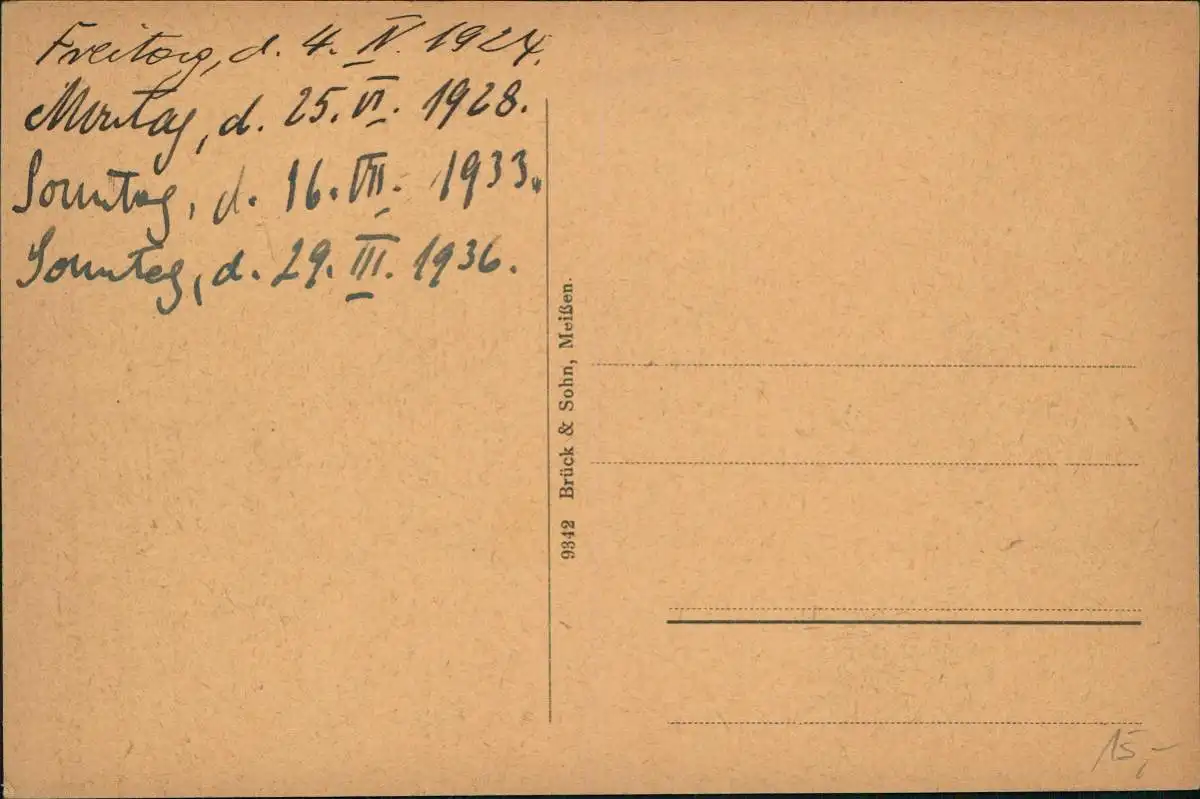 Freitag, d. 4. IV. 1924.
Montag, d. 25. VI. 1928.
Sonntag, d. 16. VII. 1933.
Sonntag, d. 29. III. 1936.
9342 Brück & Sohn, Meißen.
15,-